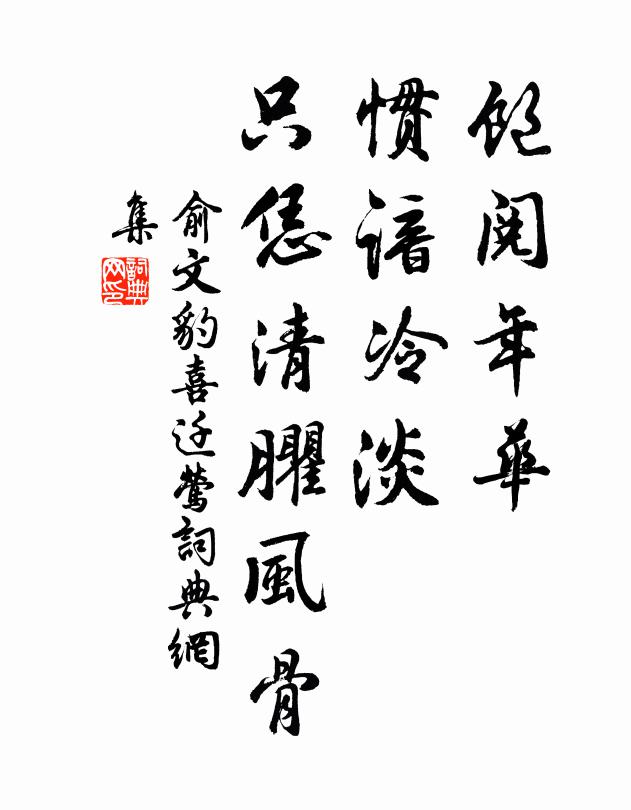 飽閱年華
慣諳冷淡
只恁清臞風骨
俞文豹喜迁鶯詞典網
集
詞典
网印